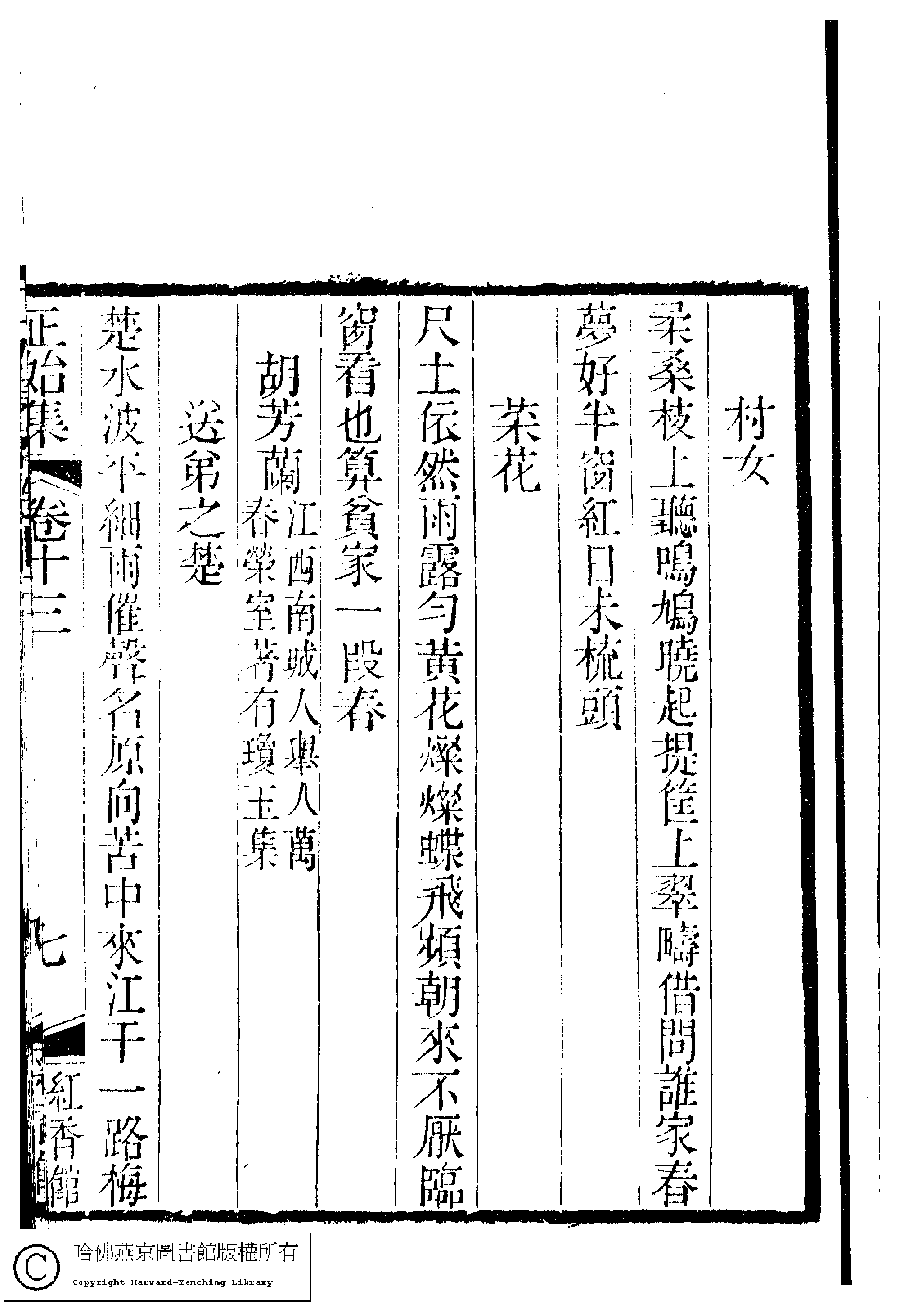 村女
柔桑枝上聽鳴鳩曉起提筐上翠疇借問誰家春
夢好半窗紅日未梳頭
菜花
尺土依然雨露勻黃花燦燦蝶飛頻朝來不厭臨
窗看也算貧家一段春
胡芳蘭江西南城人舉人萬
春榮室著有瓊玉集
送弟之楚
楚水波平細雨催聲名原向苦中來江干一路梅
正始集
卷十三
七
紅香館
哈佛燕京圖書館版權所有
Copyright Harvard-Yenching Library